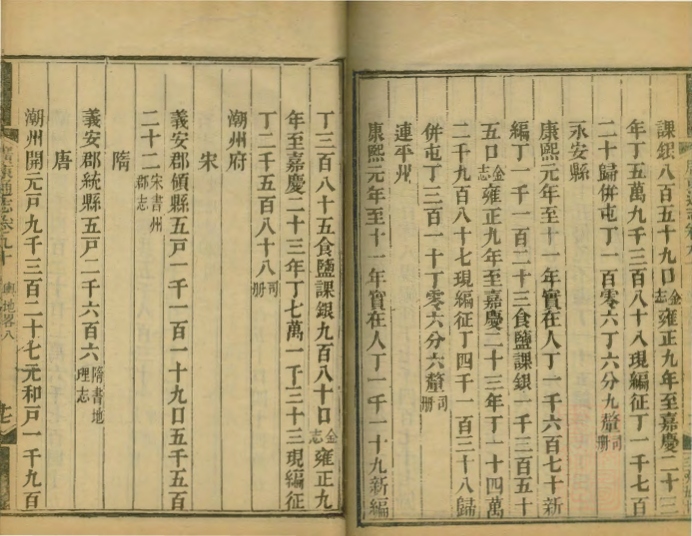 課銀八百五十九口金志雍正九年至嘉慶二十三
年丁五萬九千三百八十八現編征丁一千七百
二十歸併屯丁一百零六丁六分九釐司冊
永安縣
康熙元年至十一年實在人丁一千六百七十新
編丁一千一百二十三食鹽課銀一千三百五十
五口金志雍正九年至嘉慶二十三年丁一十四萬
二千九百八十七現編征丁四千一百三十八歸
併屯丁三百一十丁零六分六釐司冊
連平州
康熙元年至十一年實在人丁一千一十九新編
丁三百八十五食鹽課銀九百八十口金志雍正九
年至嘉慶二十三年丁七萬一千三十三現編征
丁二千五百八十八司冊
潮州府
宋
義安郡領縣五戸一千一百一十九口五千五百
二十二宋書州郡志
隋
義安郡統縣五戸二千六百六隋書地理志
唐
潮州開元戸九千三百二十七元和戸一千九百
廣東通志卷九十 輿地畧八